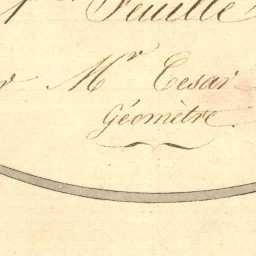 Feuille
Mr Cesar
Géomètre.